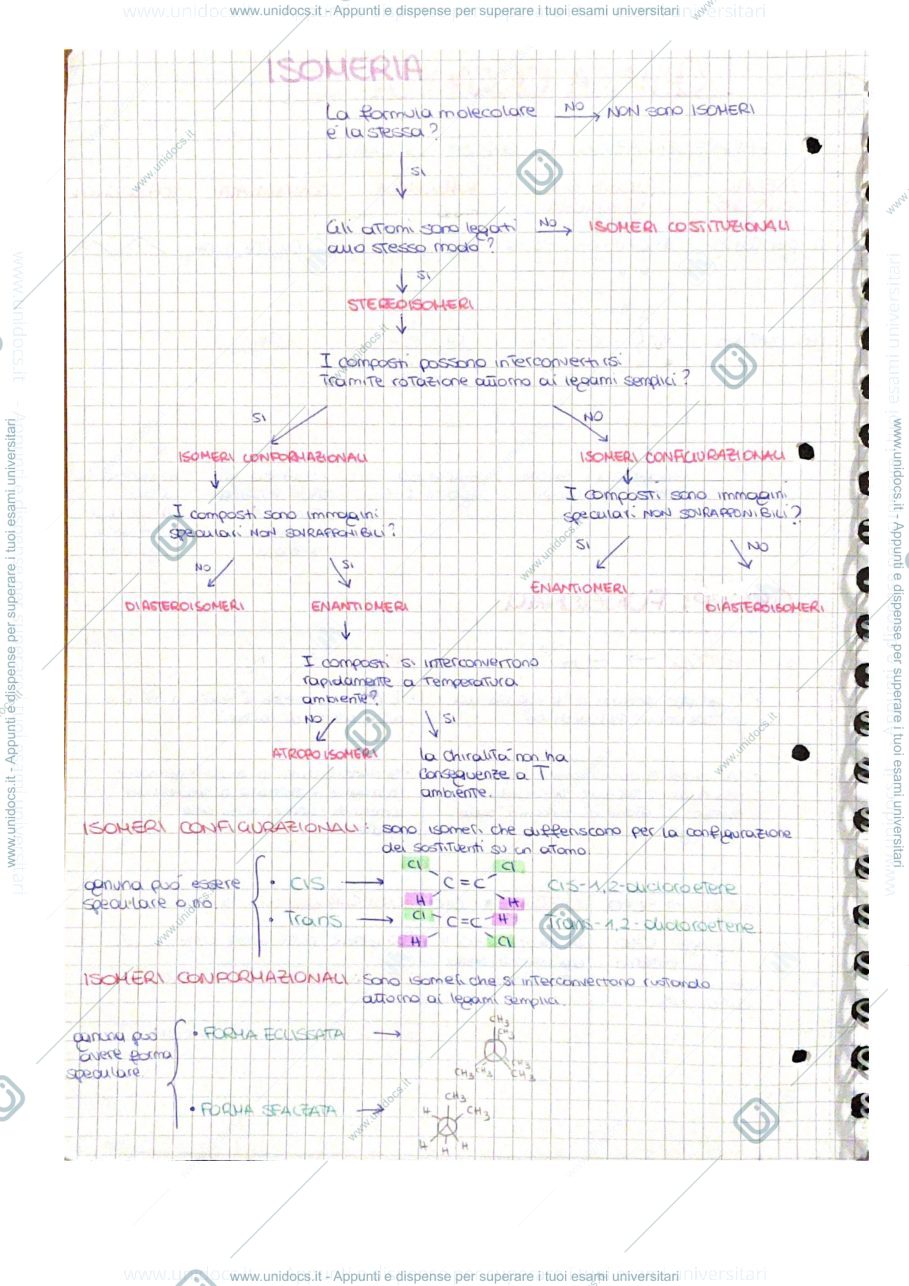 www.unidocs.it - Appunti e dispense per superare i tuoi esami universitari
ISOMERIA
La formula molecolare NO NON sono ISOMERI
e' la stessa?
SI
Gli atomi sono legati NO ISOMERI COSTITUZIONALI
allo stesso modo?
SI
STEREOISOMERI
I composti possono interconvertirsi
tramite rotazione attorno ai legami semplici?
SI NO
ISOMERI CONFORMAZIONALI ISOMERI CONFIGURAZIONALI
I composti sono immagini
speculari NON SOVRAPPONIBILI?
I composti sono immagini
speculari NON SOVRAPPONIBILI?
NO SI SI NO
DIASTEROISOMERI ENANTIOMERI ENANTIOMERI DIASTEROISOMERI
I composti si interconvertono
rapidamente a temperatura
ambiente?
NO SI
ATROPOISOMERI
la chiralità non ha
conseguenze a T
ambiente.
ISOMERI CONFIGURAZIONALI: sono isomeri che differiscono per la configurazione
dei sostituenti su un atomo.
ognuna può essere
speculare o no.
• CIS
Cl Cl
C=C
H H
cis-1,2-dicloroetene
• Trans
Cl C=C H
H Cl
Trans-1,2-dicloroetene
ISOMERI CONFORMAZIONALI sono isomeri che si interconvertono ruotando
attorno ai legami semplici.
ognuna può
avere forma
speculare.
• FORMA ECLISSATA
CH3
CH3
CH3 CH3 CH3 CH3
• FORMA SFALZATA
CH3
H CH3
H H H
www.unidocs.it - Appunti e dispense per superare i tuoi esami universitari
www.unidocs.it - Appunti e dispense per superare i tuoi esami universitari
www.unidocs.it - Appunti e dispense per superare i tuoi esami universitari